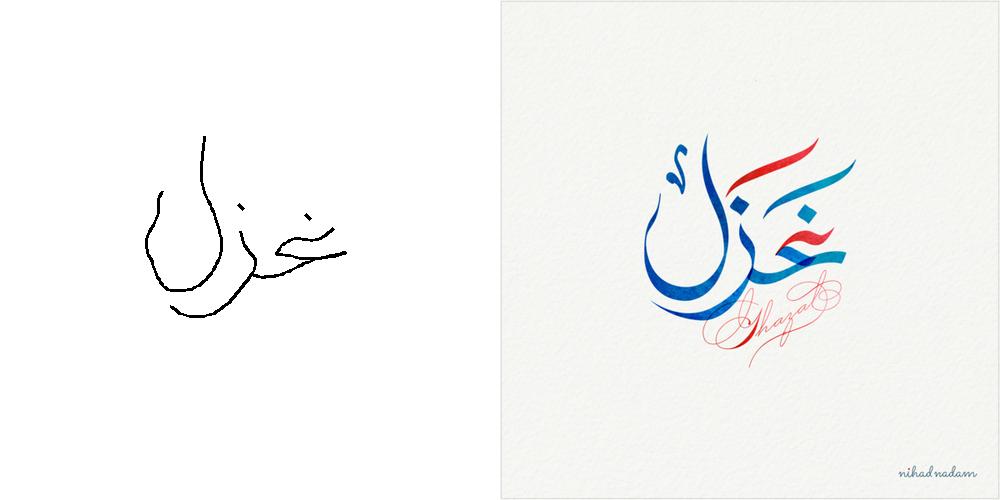 غزل غَزَل
Ghazal
nihad nadam